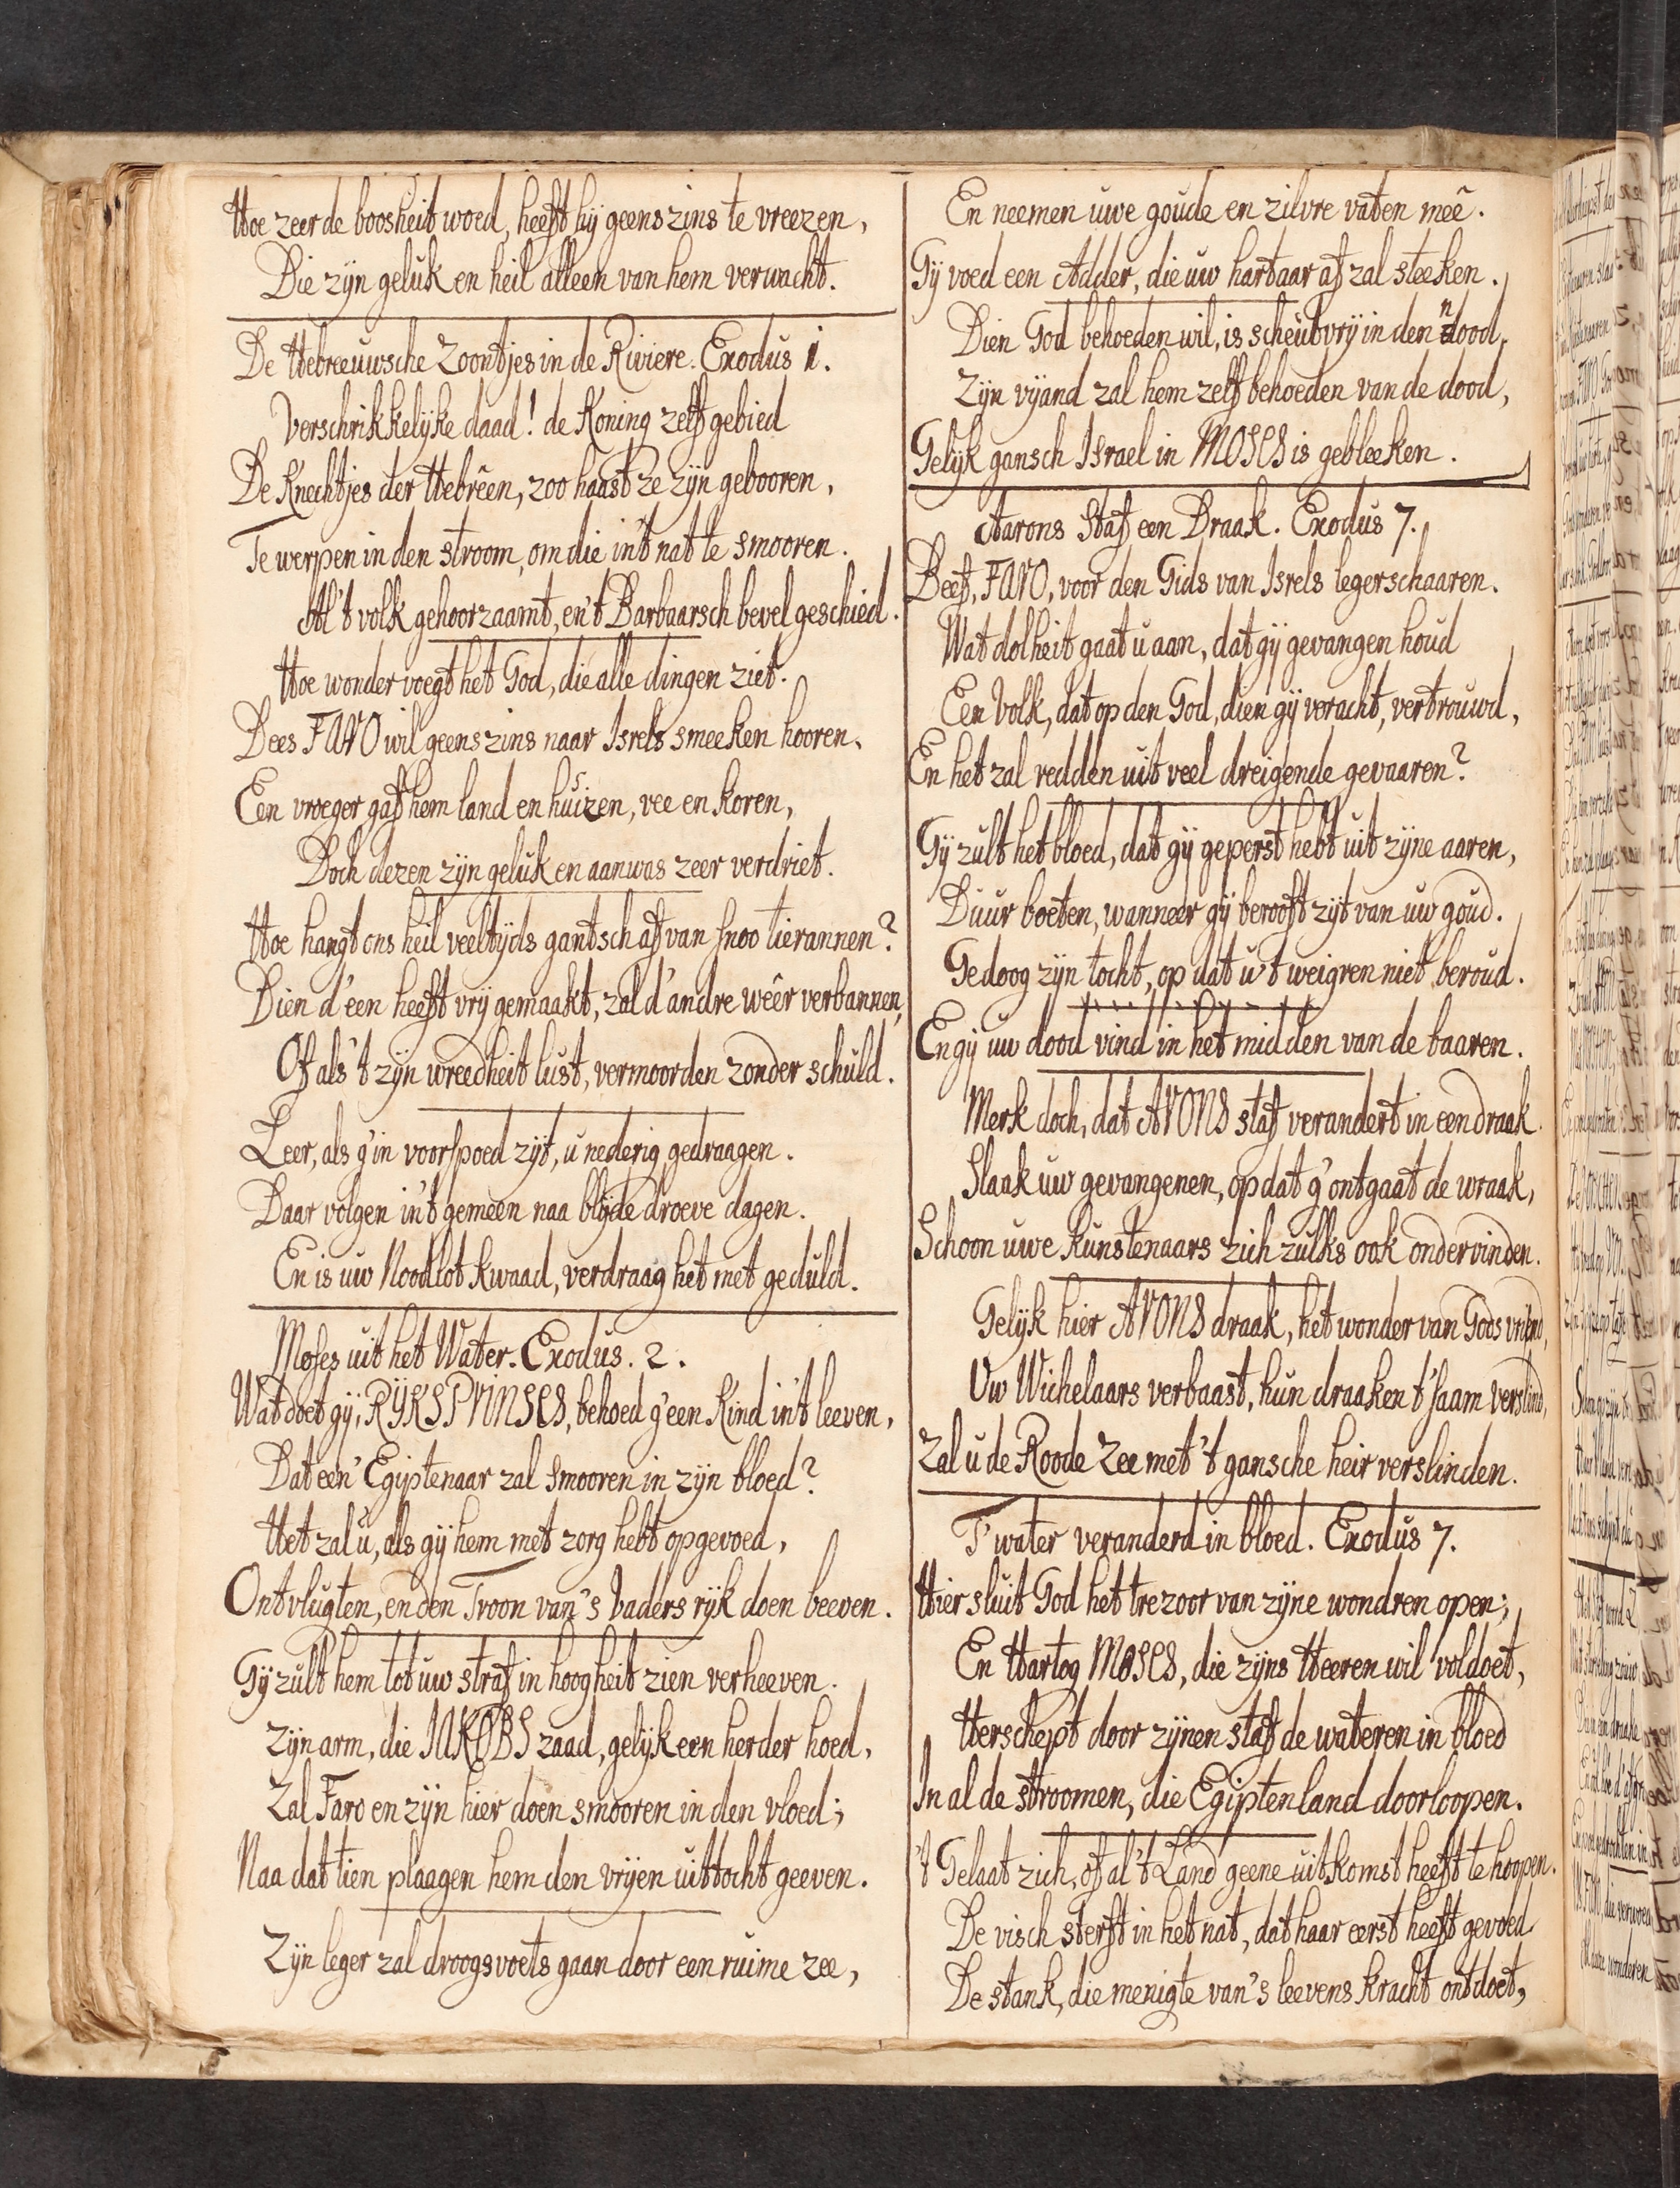 Hoe zeer de boosheit woed, heeft hij geenszins te vreezen,
Die zijn geluk en heil alleen van hem verwacht.
De Hebreeuwsche Zoontjes in de Riviere. Exodus 1.
Verschrikkelijke daad! de Koning zelf gebied
De Knechtjes der Hebrêen, zoo haast ze zijn gebooren,
Te werpen in den stroom, om die in't nat te smooren.
Al 't volk gehoorzaamt, en 't Barbaarsch bevel geschied.
Hoe wonder voegt het God, die alle dingen ziet.
Dees FARO wil geenszins naar Isrels smeeken hooren,
Een vroeger gaf hem land en huizen, vee en koren,
Doch dezen zijn geluk en aanwas zeer verdriet.
Hoe hangt ons heil veeltijds gantsch af van snoo tierannen?
Dien d'een heeft vrij gemaakt, zal d'andre wêer verbannen,
Of als 't zijn wreedheit lust, vermoorden zonder schuld.
Leer, als g'in voorspoed zijt, u nederig gedraagen.
Daar volgen in't gemeen naa blijde droeve dagen.
En is uw Noodlot kwaad, verdraag het met geduld.
Moses uit het Water. Exodus. 2.
Wat doet gij, RYKSPRINSES, behoed g'een Kind in't leeven,
Dat een' Egijptenaar zal smooren in zijn bloed?
Het zal u, als gij hem met zorg hebt opgevoed,
Ontvlugten, en den Troon van 's Vaders rijk doen beeven.
Gij zult hem tot uw straf in hoogheit zien verheeven.
Zijn arm, die JAKOBS zaad, gelijk een herder hoed,
Zal Faro en zijn hier doen smooren in den vloed;
Naa dat tien plaagen hem den vrijen uittocht geeven.
Zijn leger zal droogsvoets gaan door een ruime zee,
En neemen uwe goude en zilvre vaten meê.
Gij voed een Adder, die uw hartaar af zal steeken.
Dien God behoeden wil, is scheutvrij in den nood,
Zijn vijand zal hem zelf behoeden van de dood,
Gelijk gansch Israel in MOSES is gebleeken.
Aarons Staf een Draak. Exodus 7.
Beef, FARO, voor den Gids van Isrels legerschaaren.
Wat dolheit gaat u aan, dat gij gevangen houd
Een Volk, dat op den God, dien gij veracht, vertrouwd,
En het zal redden uit veel dreigende gevaaren?
Gij zult het bloed, dat gij geperst hebt uit zijne aaren,
Duur boeten, wanneer gij berooft zijt van uw goud.
Gedoog zijn tocht, op dat u 't weigren niet beroud.
En gij uw dood vind in het midden van de baaren.
Merk doch, dat ARONS staf verandert in een draak.
Slaak uw gevangenen, op dat g'ontgaat de wraak,
Schoon uwe Kunstenaars zich zulks ook ondervinden.
Gelijk hier ARONS draak, het wonder van Gods vriend,
Uw Wichelaars verbaast, hun draaken t'saam verslind,
Zal u de Roode Zee met 't gansche heir verslinden.
T' water veranderd in bloed. Exodus 7.
Hier sluit God het trezoor van zijne wondren open;
En Hartog MOSES, die zijns Heeren wil voldoet,
Herschept door zijnen staf de wateren in bloed
In al de stroomen, die Egiptenland doorloopen.
't Gelaat zich, of al 't Land geene uitkomst heeft te hoopen.
De visch sterft in het nat, dat haar eerst heeft gevoed
De stank, die menigte van 's leevens kracht ontdoet,